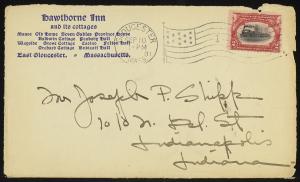 Hawthorne Inn
and its cottages
Manse Old Manse Seven Gables Province House
Baldwin Cottage Peabody Hall
Wayside Grove Cottage Casino Fulton Hall
Orchard Cottage
East Gloucester, Massachusetts.
GLOUCESTER
Mr Joseph P. Shipp
1010 N. Del. St
Indianapolis
Indiana